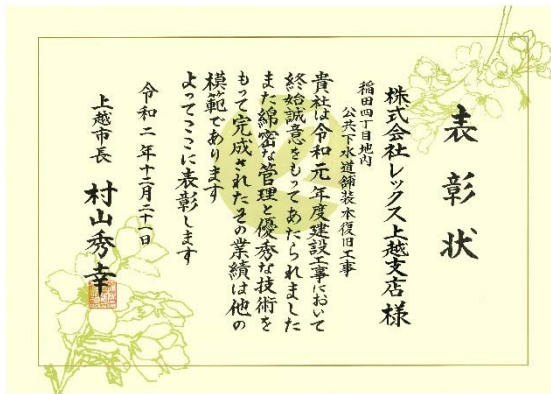 表彰状
株式会社レックス上越支店様
稲田四丁目地内
公共下水道舗装本復旧工事
貴社は令和元年度建設工事において
終始誠意をもってあたられました
また綿密な管理と優秀な技術を
もって完成されたその業績は他の
模範であります
よってここに表彰します
令和二年十二月二十一日
上越市長 村山秀幸